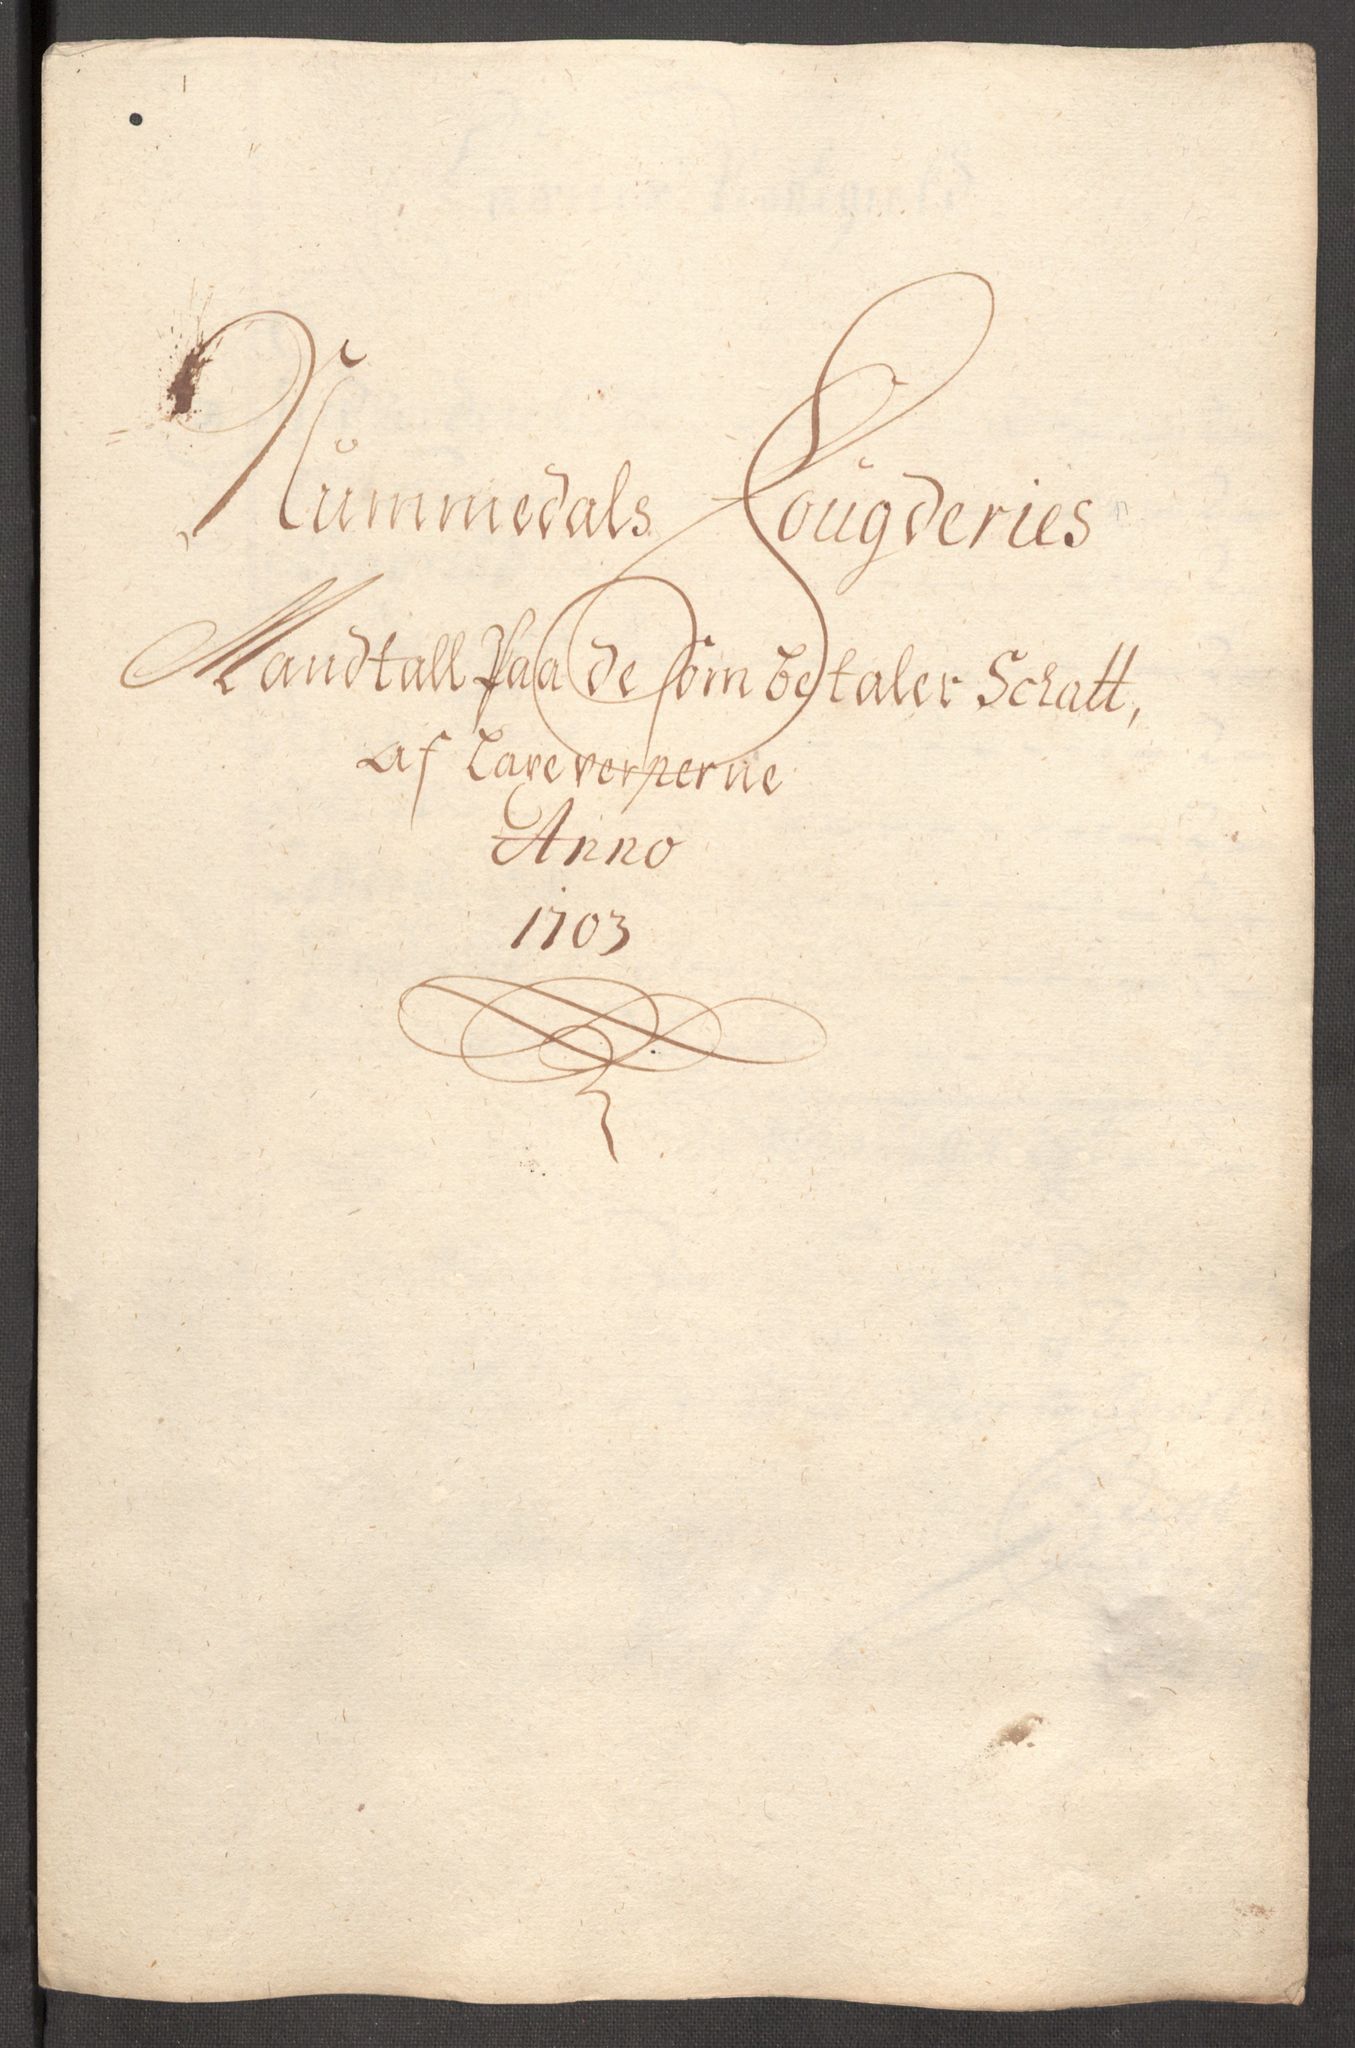 Nummedals Fougderies
Mandtall Paa de som betaler Schatt,
af Laxeverperne
Anno
1703